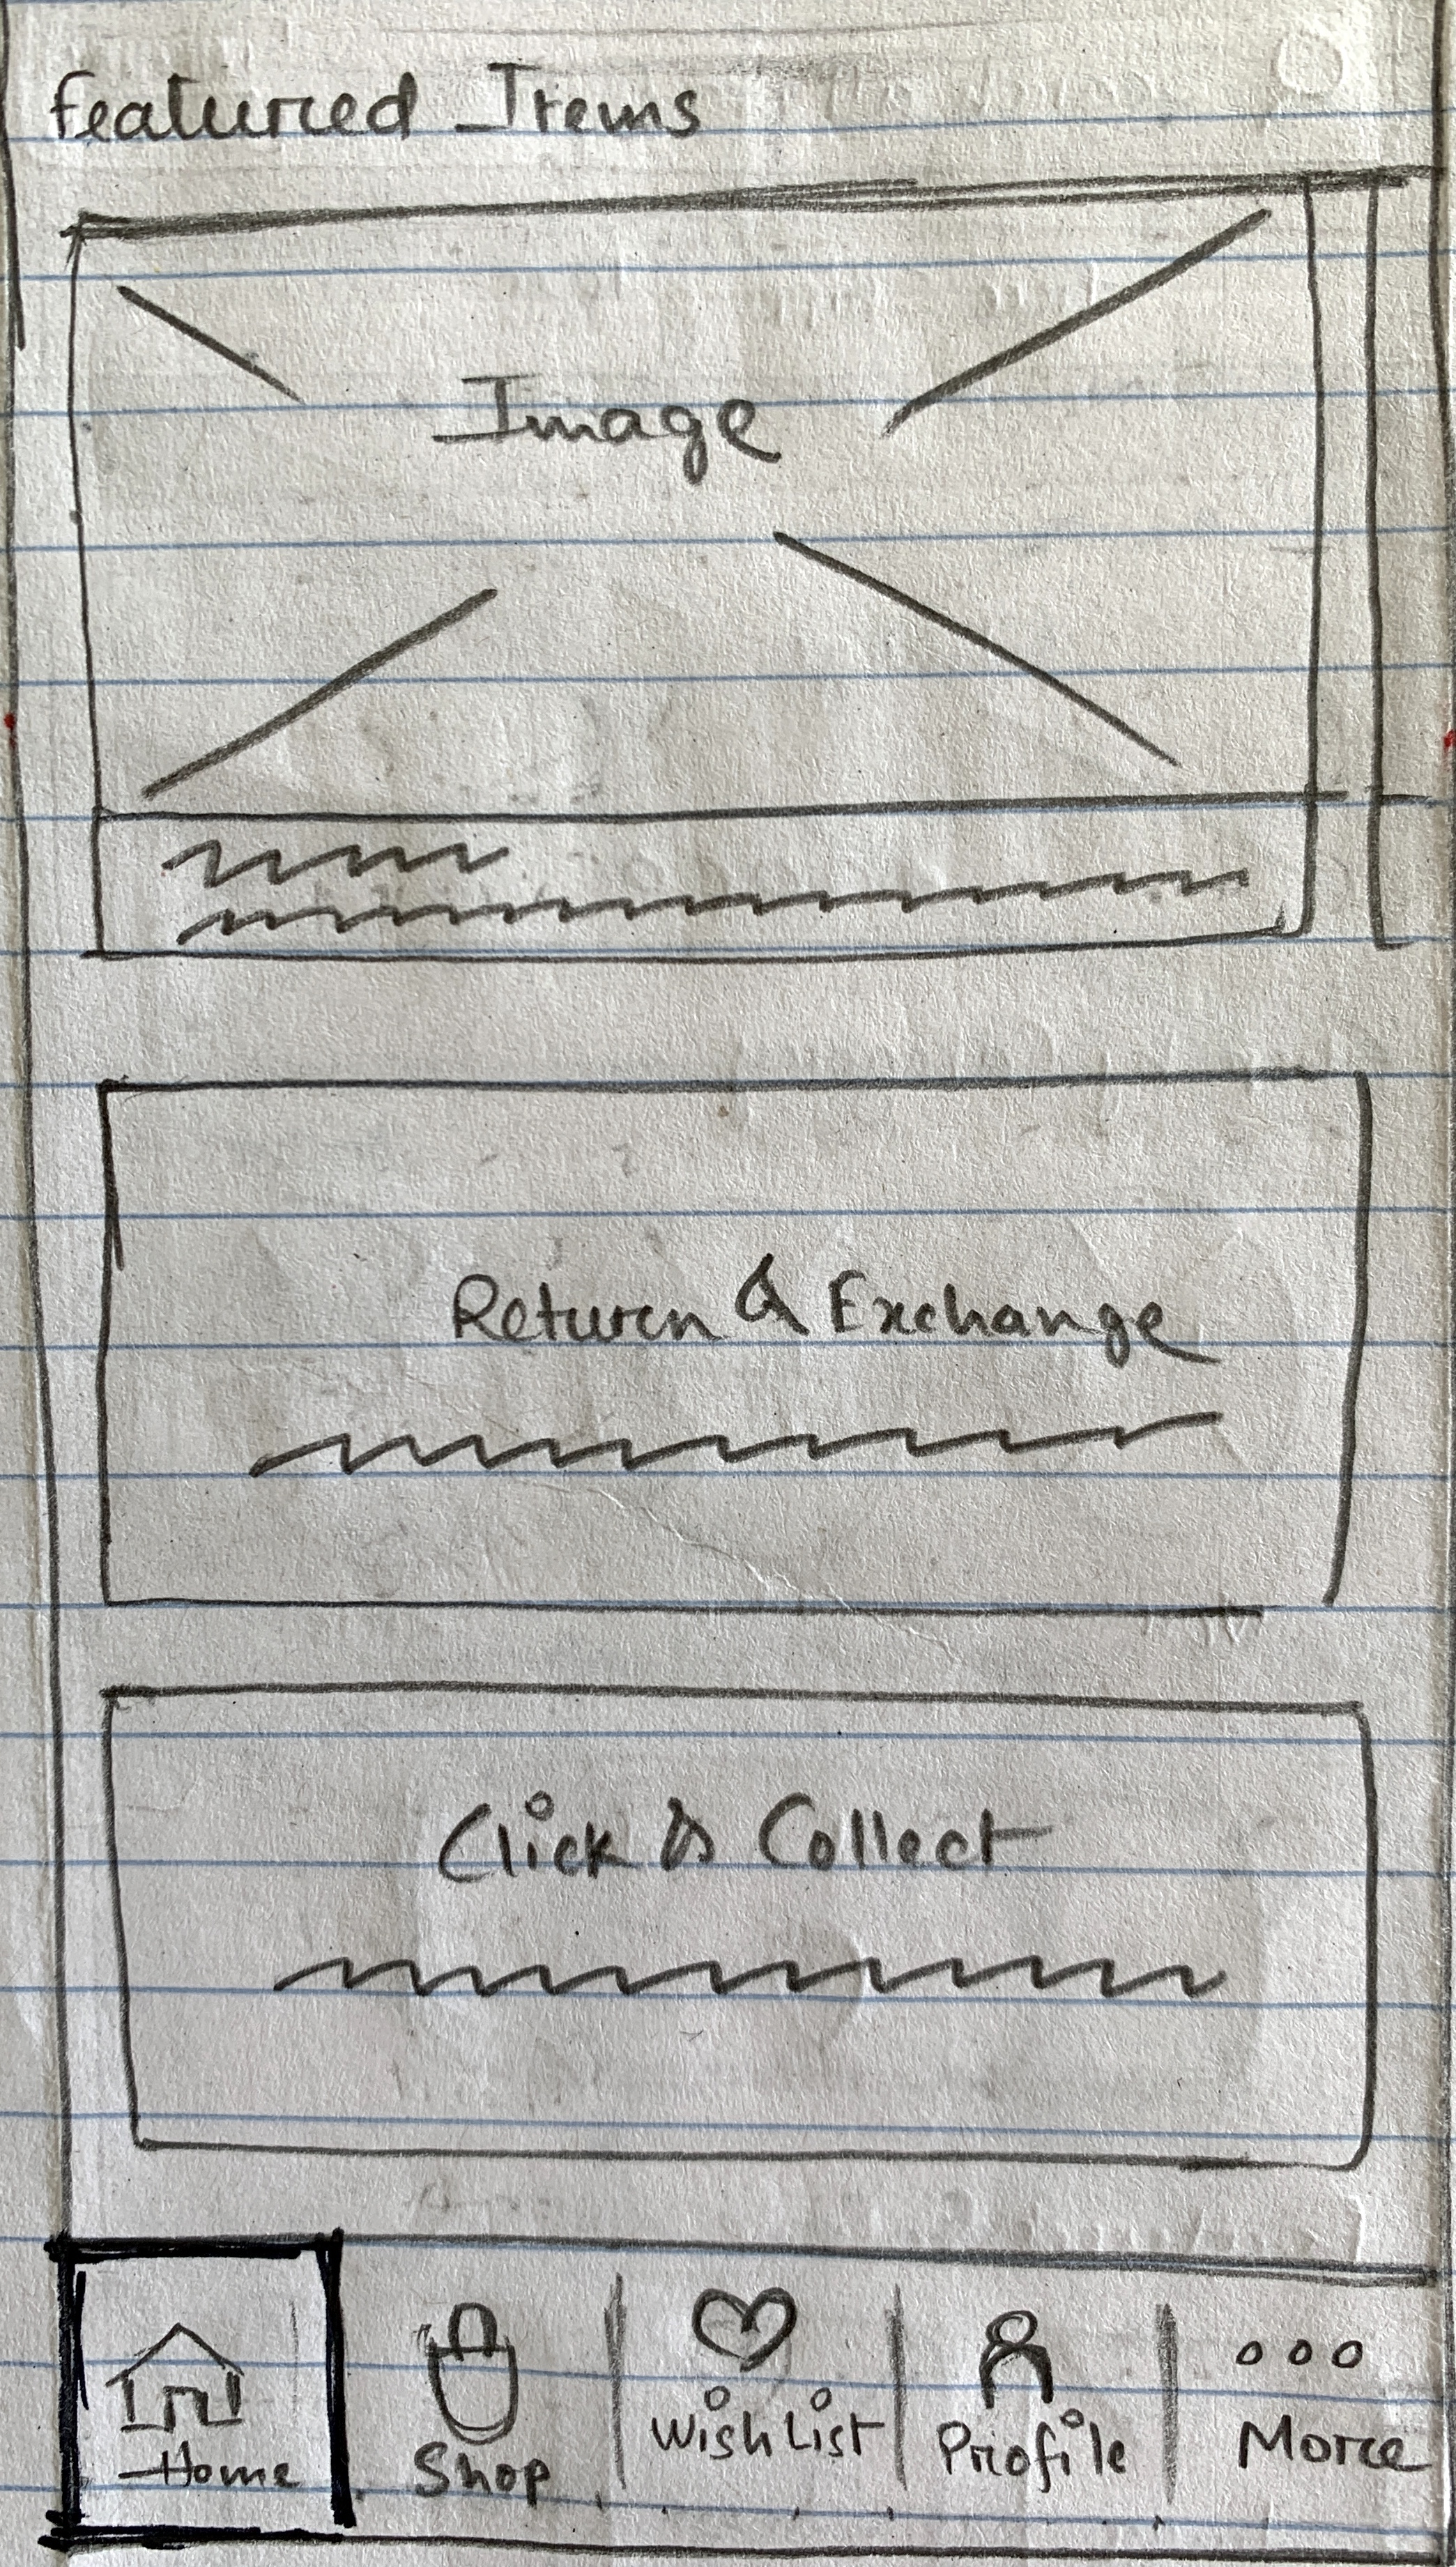 Featured Items
Image
Return & Exchange
Click & Collect
Home Shop Wishlist Profile More